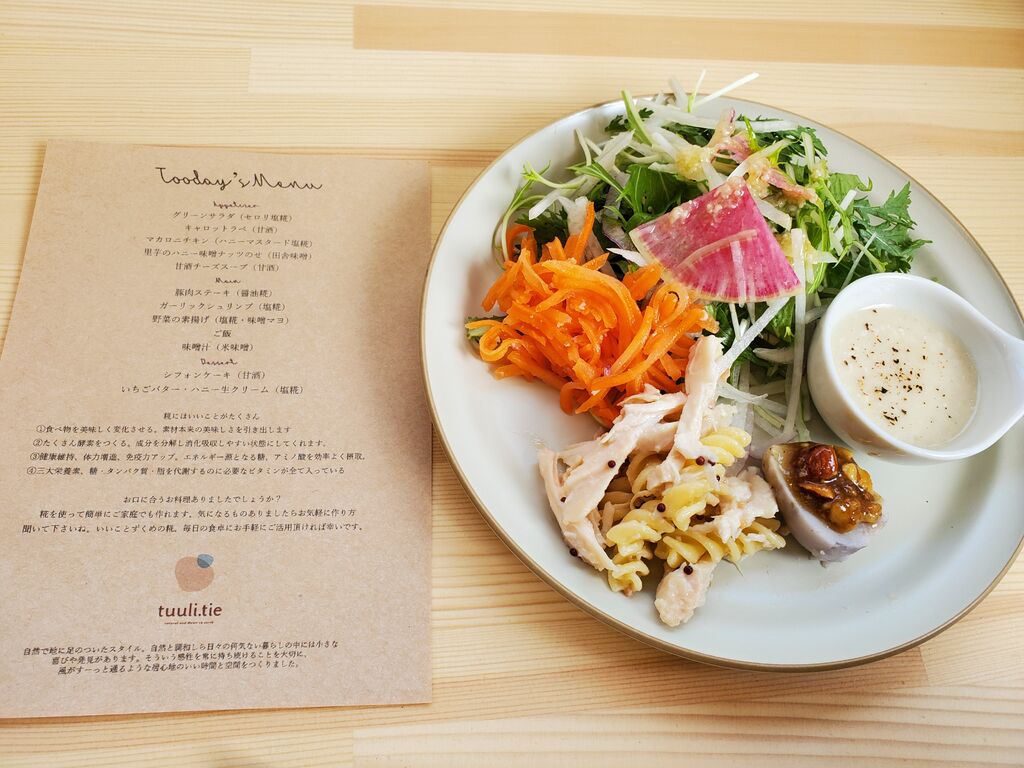 Tooday's Menu
Appetizer
グリーンサラダ（セロリ塩糀）
キャロットラペ（甘酒）
マカロニチキン（ハニーマスタード塩糀）
里芋のハニー味噌ナッツのせ（田舎味噌）
甘酒チーズスープ（甘酒）
Main
豚肉ステーキ（醤油糀）
ガーリックシュリンプ（塩糀）
野菜の素揚げ（塩糀・味噌マヨ）
ご飯
味噌汁（米味噌）
Dessert
シフォンケーキ（甘酒）
いちごバター・ハニー生クリーム（塩糀）
糀にはいいことがたくさん
①食べ物を美味しく変化させる。素材本来の美味しさを引き出します
②たくさん酵素をつくる。成分を分解し消化吸収しやすい状態にしてくれます。
③健康維持、体力増進、免疫力アップ。エネルギー源となる糖、アミノ酸を効率よく摂取。
④三大栄養素、糖・タンパク質・脂を代謝するのに必要なビタミンが全て入っている
お口に合うお料理ありましたでしょうか？
糀を使って簡単にご家庭でも作れます。気になるものありましたらお気軽に作り方
聞いて下さいね。いいことずくめの糀。毎日の食卓にお手軽にご活用頂ければ幸いです。
tuuli.tie
natural and down to earth
自然で地に足のついたスタイル。自然と調和しら日々の何気ない暮らしの中には小さな
喜びや発見があります。そういう感性を常に持ち続けることを大切に、
風がすーっと通るような居心地のいい時間と空間をつくりました。